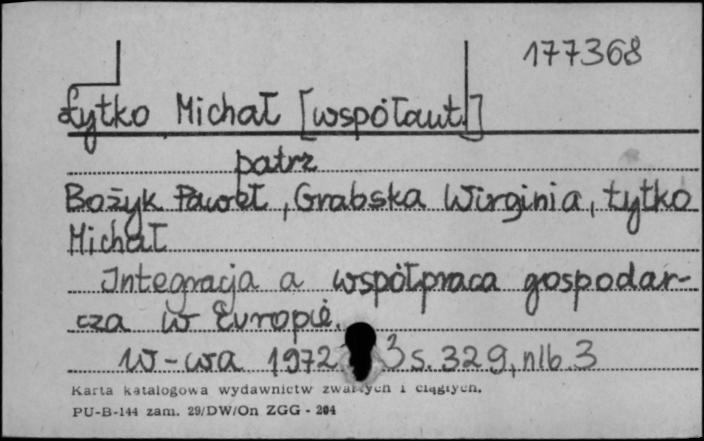 177368
Łytko Michał [współaut.]
patrz
Bożyk Paweł, Grabska Wirginia, Łytko
Michał
Integracja a współpraca gospodar-
cza w Europie.
W-wa 1972 3 s. 329, nlb. 3
Karta katalogowa wydawnictw zwartych i ciągłych.
PU-B-144 zam. 29/DW/On ZGG - 204